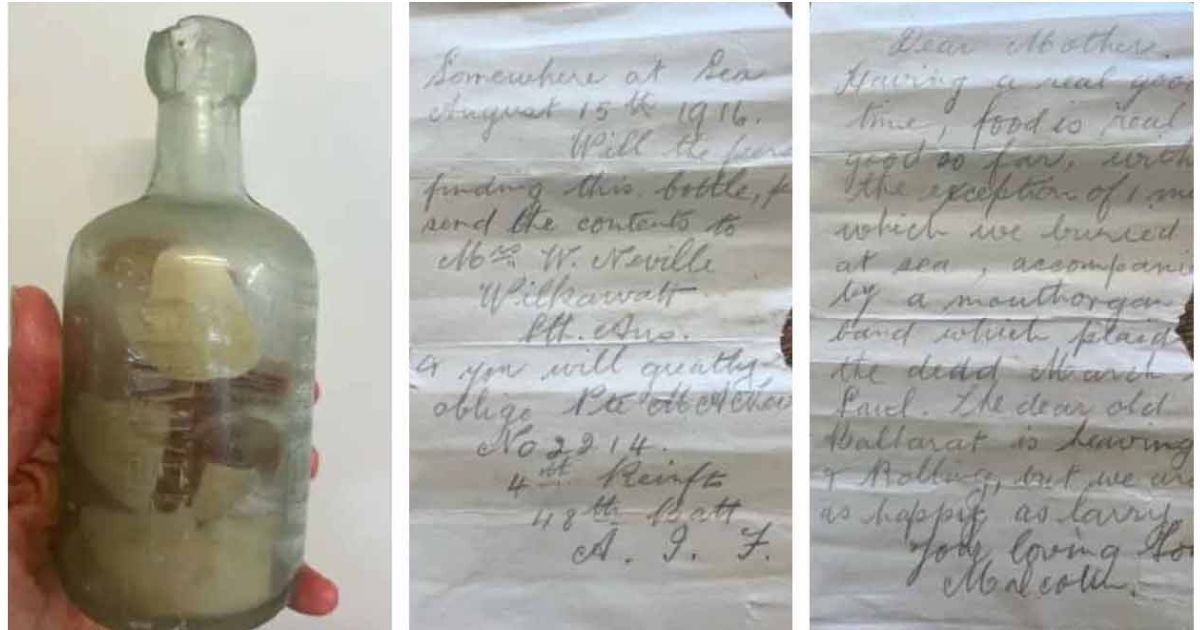 Somewhere at Sea
August 15th 1916.
Will the
finding this bottle,
send the contents to
Mrs W. Neville
Wilkawatt
Sth. Aus.
& you will greatly
oblige Pte M A
No 2214.
4th Reinfts
48th Batt
A. I. F.
Dear Mother.
Having a real goo
time, food is real
good so far, with
the exception of 1 m
which we burried
at sea, accompani
by a mouthorgan
band which plaid
the dead March
Saul. The dear old
Ballarat is heaving
& Rolling, but we ar
as happy as larry.
Your loving So
Malcolm.